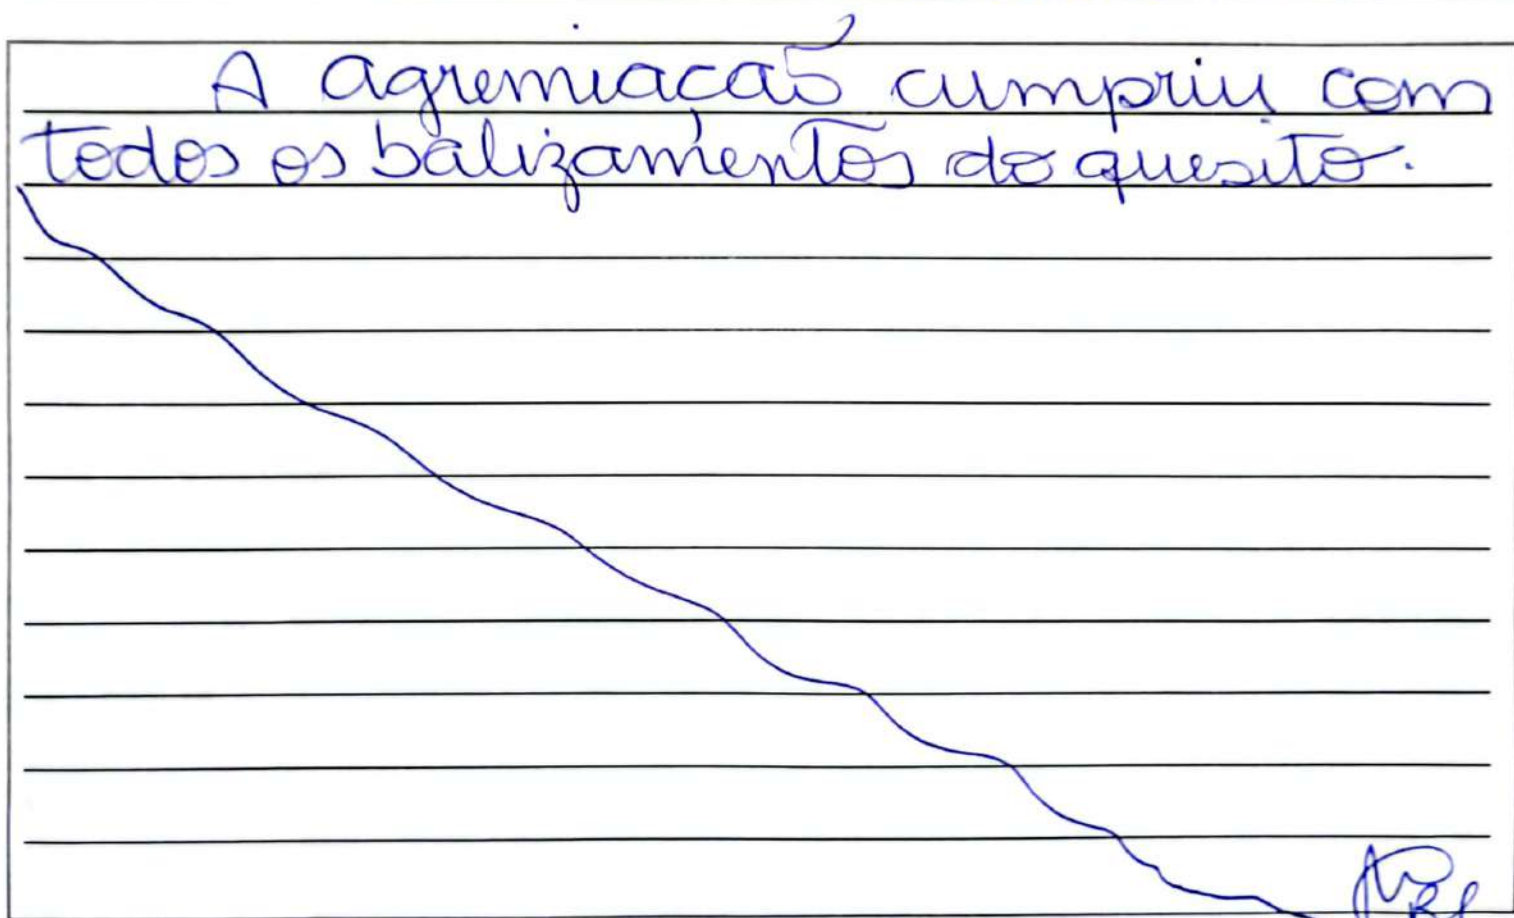 A agremiação cumpriu com
todos os balizamentos do quesito.